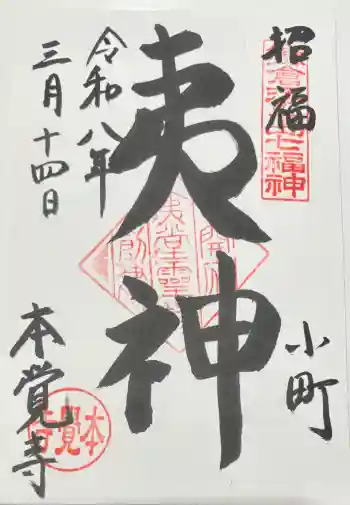 招福
鎌倉江の島七福神
小町
夷神
令和八年
三月十四日
本覺寺
本覺寺